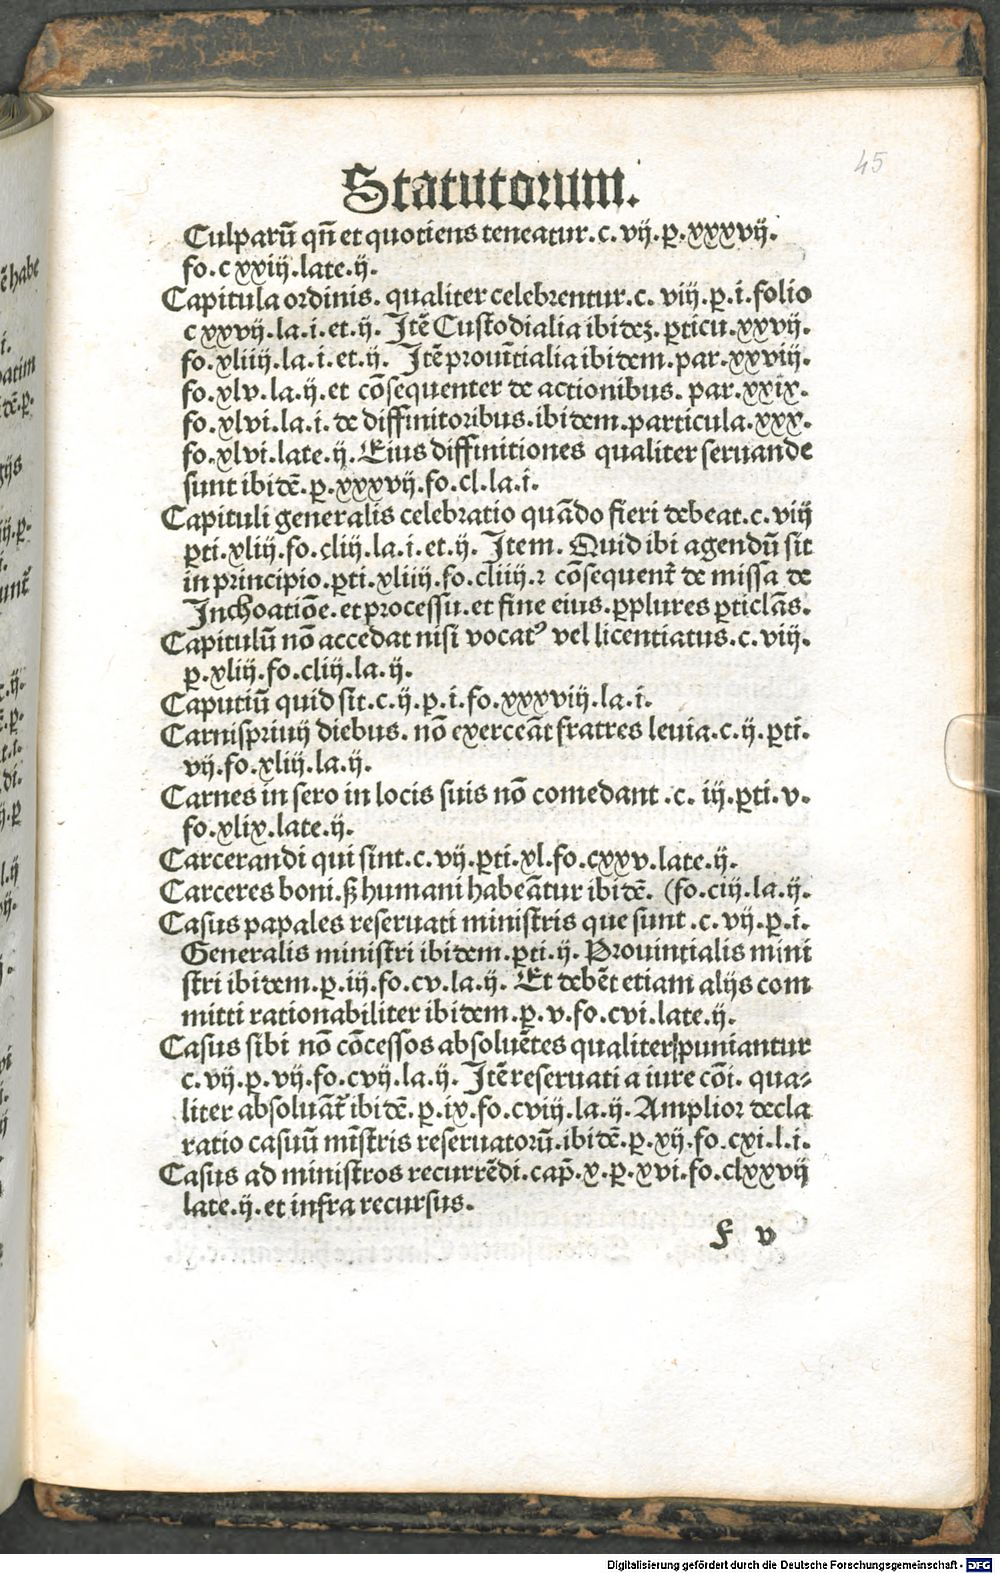 45
Statutorum.
Culparū qñ et quotiens teneatur. c. vij. ꝑ. xxxvij.
fo. c xxiij. late. ij.
Capitula ordinis. qualiter celebrentur. c. viij. ꝑ. i. folio
c xxvij. la. i. et. ij. Itē Custodialia ibideʒ. ꝑticu. xxvij.
fo. xliiij. la. i. et. ij. Itē prouītialia ibidem. par. xxviij.
fo. xlv. la. ij. et cōsequenter de actionibus. par. xxix.
fo. xlvi. la. i. de diffinitoribus. ibidem. particula. xxx.
fo. xlvi. late. ij. Eius diffinitiones qualiter seruande
sunt ibidē. ꝑ. xxxvij. fo. cl. la. i.
Capituli generalis celebratio quādo fieri debeat. c. viij
ꝑti. xliij. fo. cliij. la. i. et. ij. Item. Quid ibi agendū sit
in principio. ꝑti. xliiij. fo. cliiij. ⁊ cōsequent᷑ de missa de
Inchoatiōe. et processu. et fine eius. ꝑ plures ꝑticlās.
Capitulū nō accedat nisi vocatꝰ vel licentiatus. c. viij.
ꝑ. xliij. fo. cliij. la. ij.
Caputiū quid sit. c. ij. ꝑ. i. fo. xxxviij. la. i.
Carnispriuij diebus. nō exerceāt fratres leuia. c. ij. ꝑti.
vij. fo. xliij. la. ij.
Carnes in sero in locis suis nō comedant. c. iij. ꝑti. v.
fo. xlix. late. ij.
Carcerandi qui sint. c. vij. ꝑti. xl. fo. cxxv. late. ij.
Carceres boni. ß humani habeātur ibidē. (fo. ciij. la. ij.
Casus papales reseruati ministris que sunt. c. vij. ꝑ. i.
Generalis ministri ibidem. ꝑti. ij. Prouintialis mini
stri ibidem. ꝑ. iij. fo. cv. la. ij. Et debēt etiam alijs com
mitti rationabiliter ibidem. ꝑ. v. fo. cvi. late. ij.
Casus sibi nō cōcessos absoluētes qualiter puniantur
c. vij. ꝑ. vij. fo. cvij. la. ij. Itē reseruati a iure cōi. qua⸗
liter absoluāt᷑ ibidē. ꝑ. ix. fo. cviij. la. ij. Amplior decla
ratio casuū mīstris reseruatorū. ibidē. ꝑ. xij. fo. cxi. l. i.
Casus ad ministros recurrēdi. cap̄. x. ꝑ. xvi. fo. clxxvij
late. ij. et infra recursus.
f v
Digitalisierung gefördert durch die Deutsche Forschungsgemeinschaft - DFG